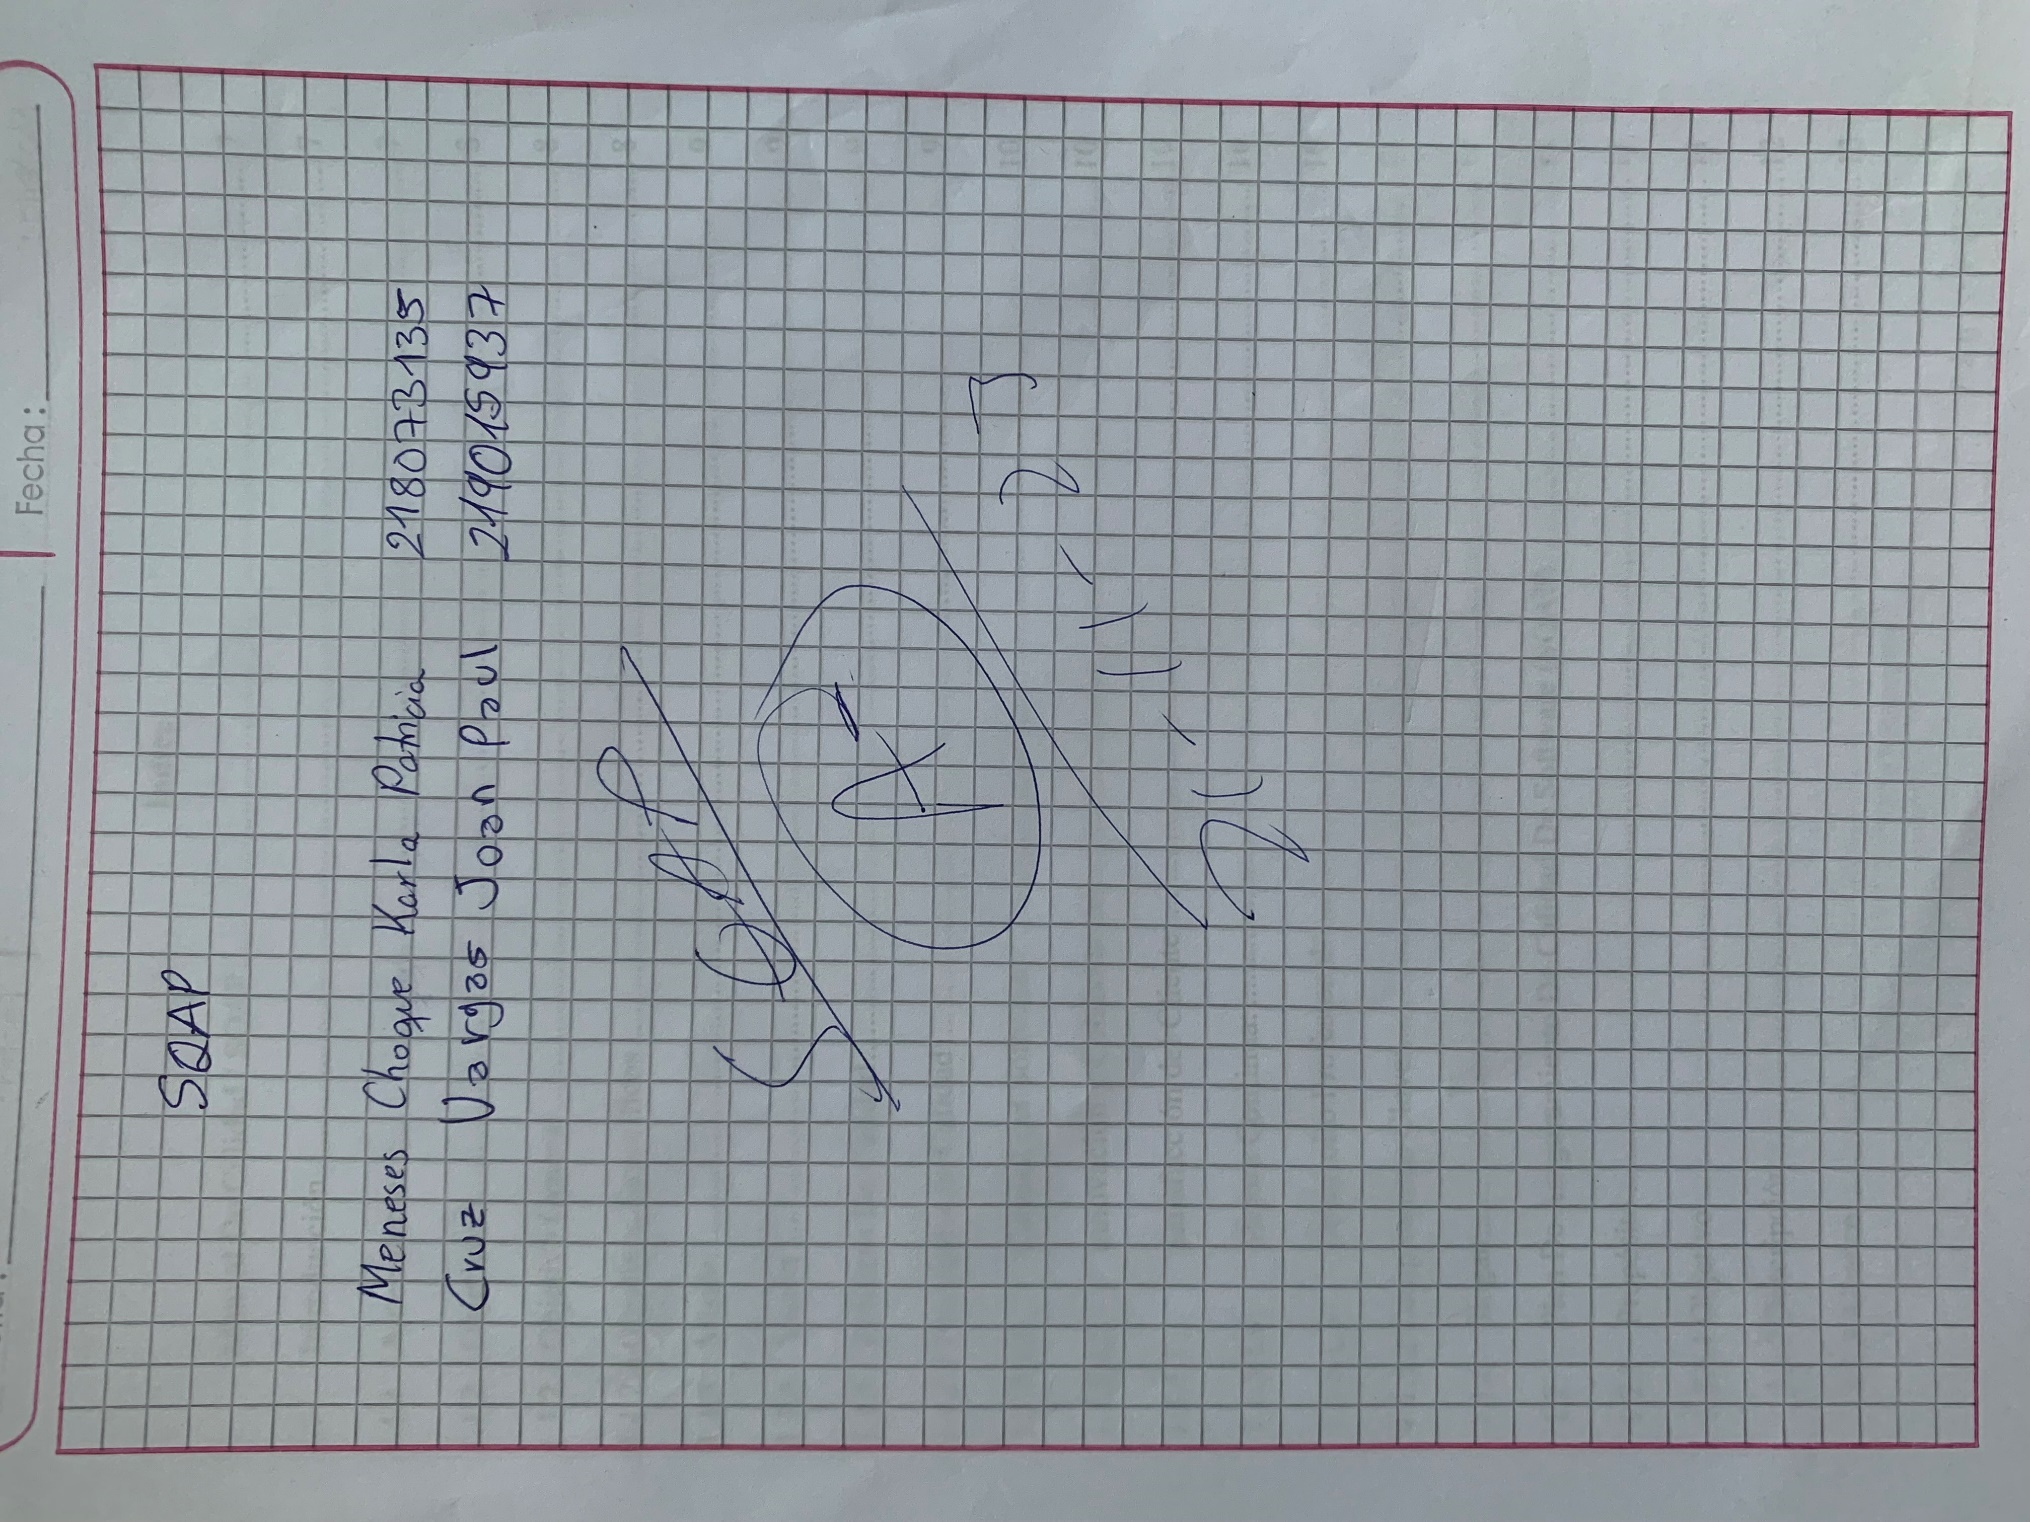 Fecha:
SQAP
Meneses Choque Karla Patricia 218073135
Cruz Vargas Joan Paul 219015937
SQAP
21-11-23